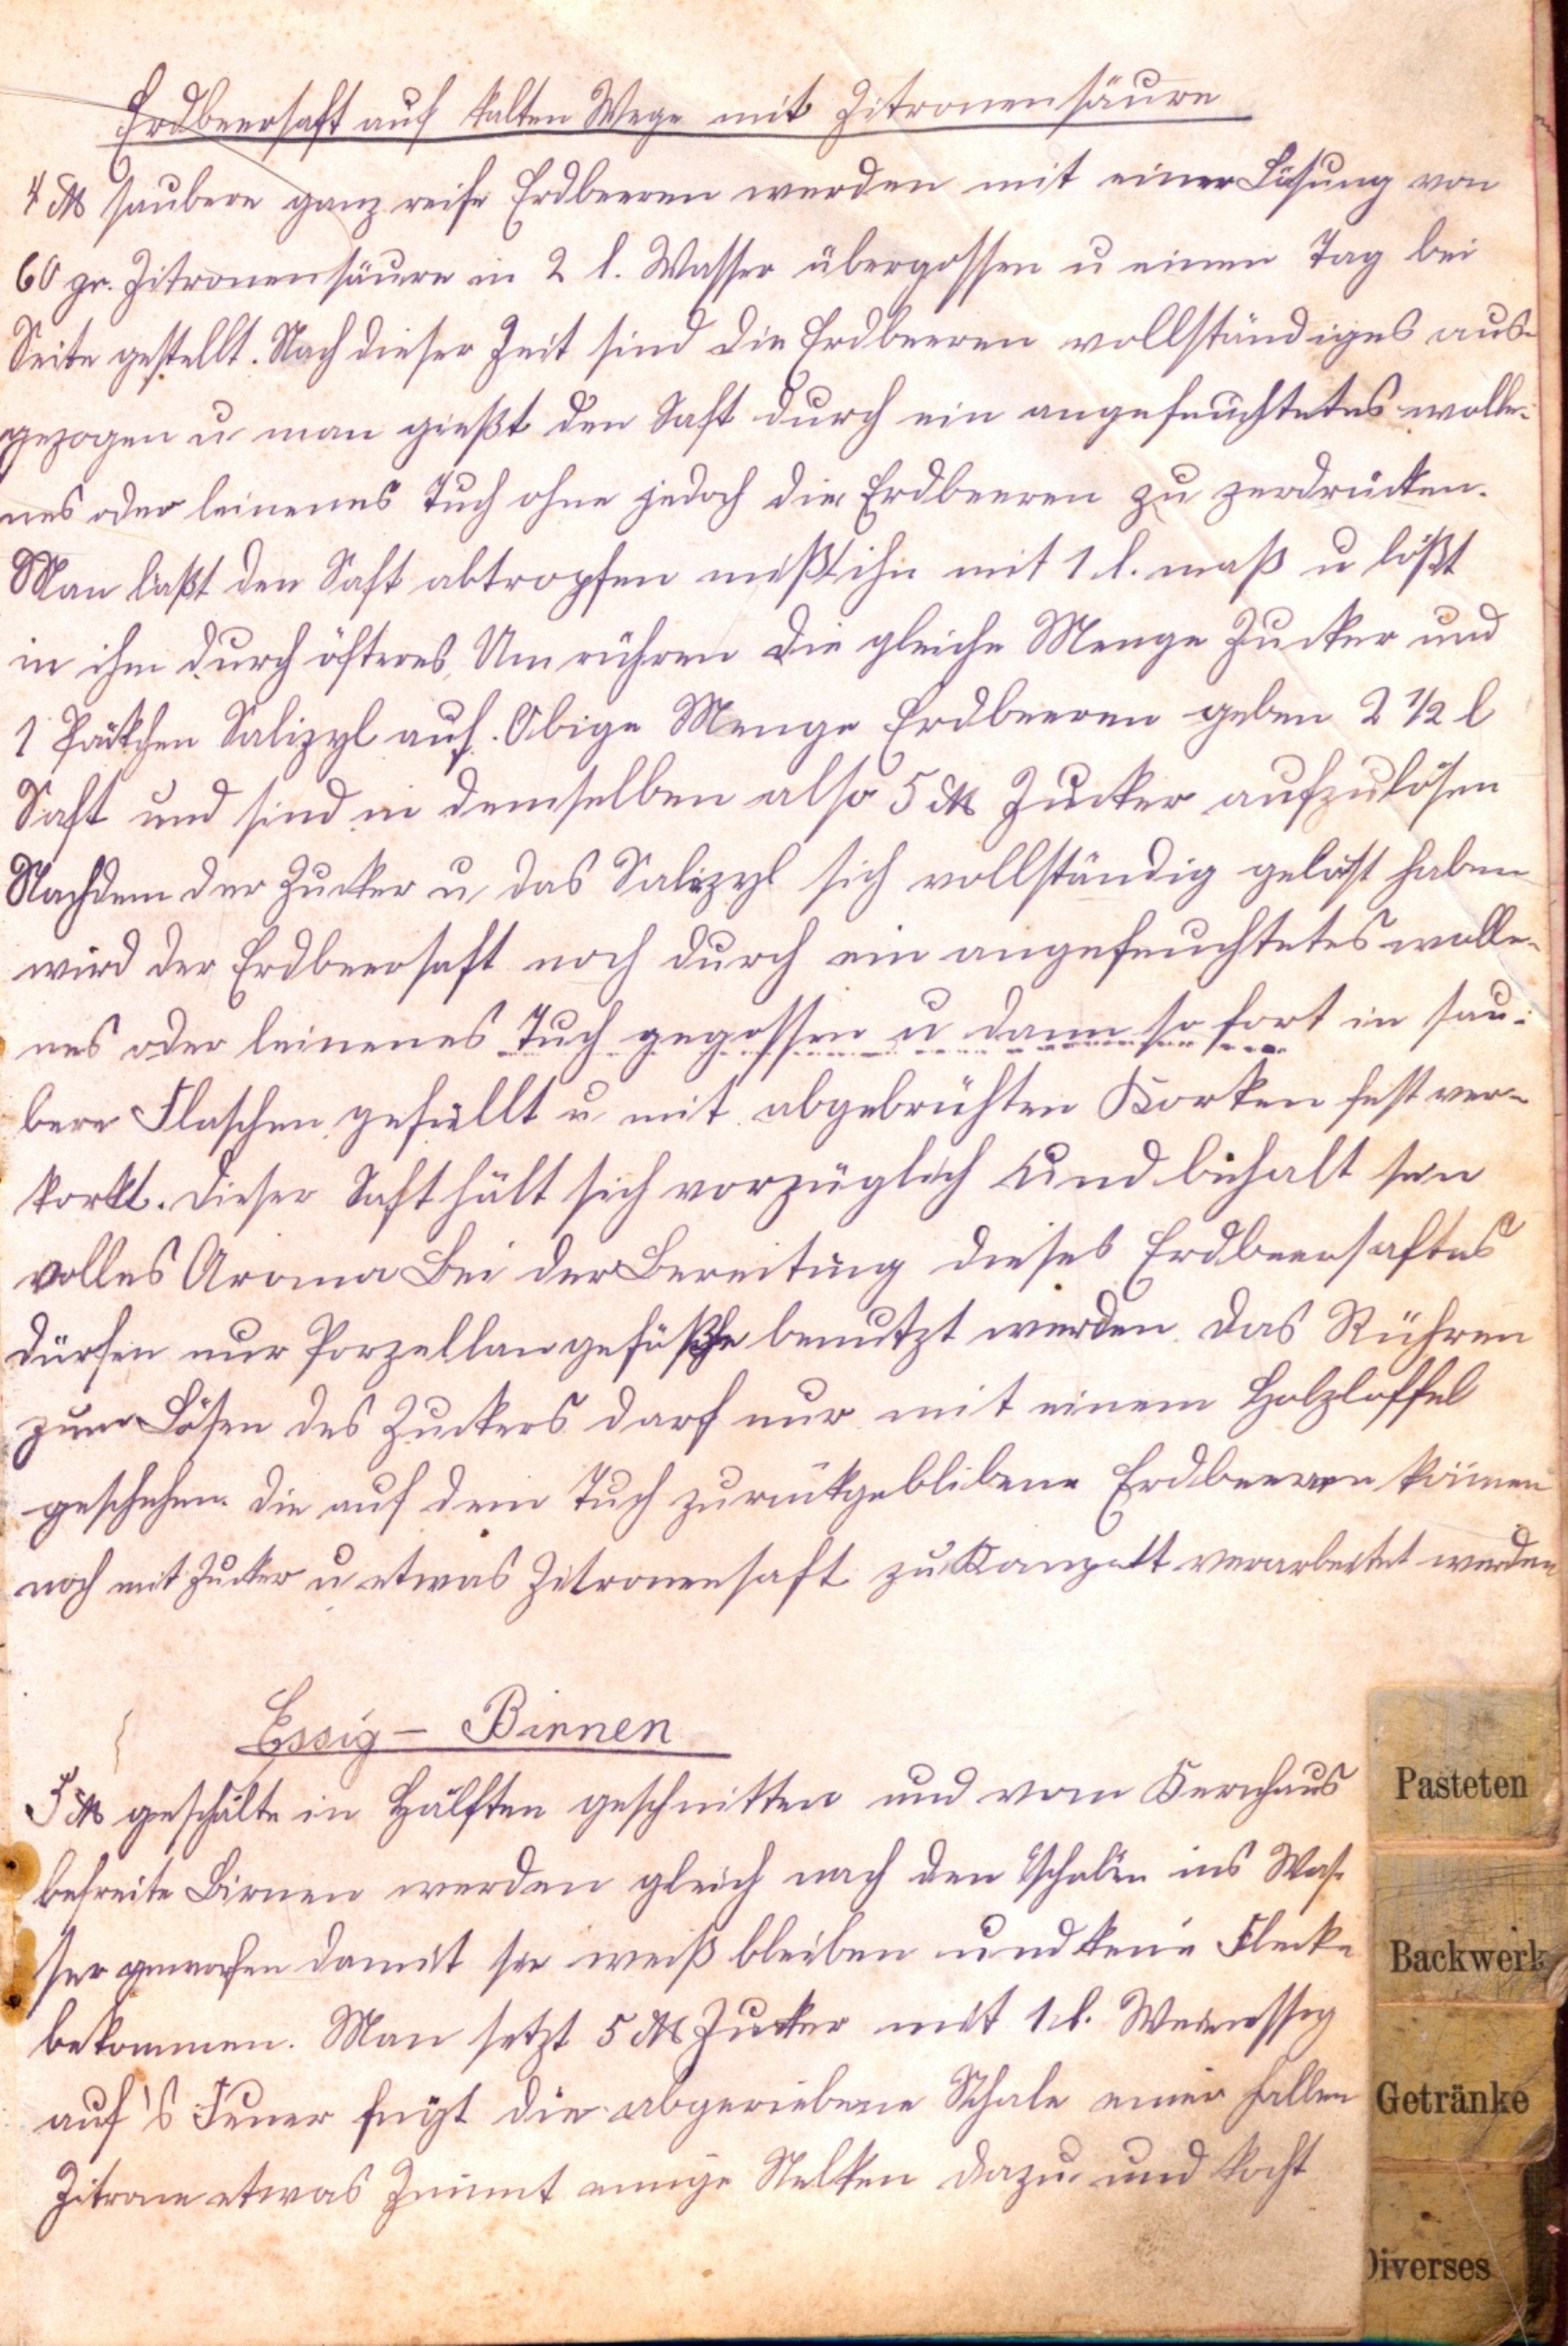 Erdbeersaft auf kalten Wege mit Zitronensäure
4 ℔ saubere ganz reife Erdbeeren werden mit einer Lösung von
60 gr. Zitronensäure in 2 l. Wasser übergossen u einen Tag bei
Seite gestellt. Nach dieser Zeit sind die Erdbeeren vollständiges aus-
gezogen u man gießt den Saft durch ein angefeuchtetes wolle-
nes oder leinenes Tuch ohne jedoch die Erdbeeren zu zerdrücken.
Man läßt den Saft abtropfen mißt ihn mit 1 l. maß u lößt
in ihm durch öfteres Umrühren die gleiche Menge Zucker und
1 Päckchen Salizyl auf. Obige Menge Erdbeeren geben 2 1/2 l
Saft und sind in demselben also 5 ℔ Zucker aufzulösen
Nachdem der Zucker u das Salizyl sich vollständig gelöst haben
wird der Erdbeersaft noch durch ein angefeuchtetes wolle-
nes oder leinenes Tuch gegossen u dann sofort in sau-
bere Flaschen gefüllt u mit abgebrühten Korken fest ver-
korkt. Dieser Saft hält sich vorzüglich und behalt sein
volles Aroma Bei der Bereitung dieses Erdbeersaftes
dürfen nur Porzellangefäße benutzt werden. Das Rühren
zum Lösen des Zuckers darf nur mit einem Holzloffel
geschehen. Die auf dem Tuch zurückgeblibene Erdbeeren können
noch mit Zucker u etwas Zitronensaft zu Kompott verarbeitet werden
Essig - Birnen
5 ℔ geschälte in Hälften geschnitten und vom Kernhaus
befreite Birnen werden gleich nach den schälen ins Was-
ser geworfen damit sie weiß bleiben und keine Flecke
bekommen. Man setzt 5 ℔ Zucker mit 1 l. Weinessig
auf's Feuer fügt die abgeriebene Schale einer halben
Zitrone etwas Zimmt einige Nelken dazu und kocht
Pasteten
Backwerk
Getränke
Diverses